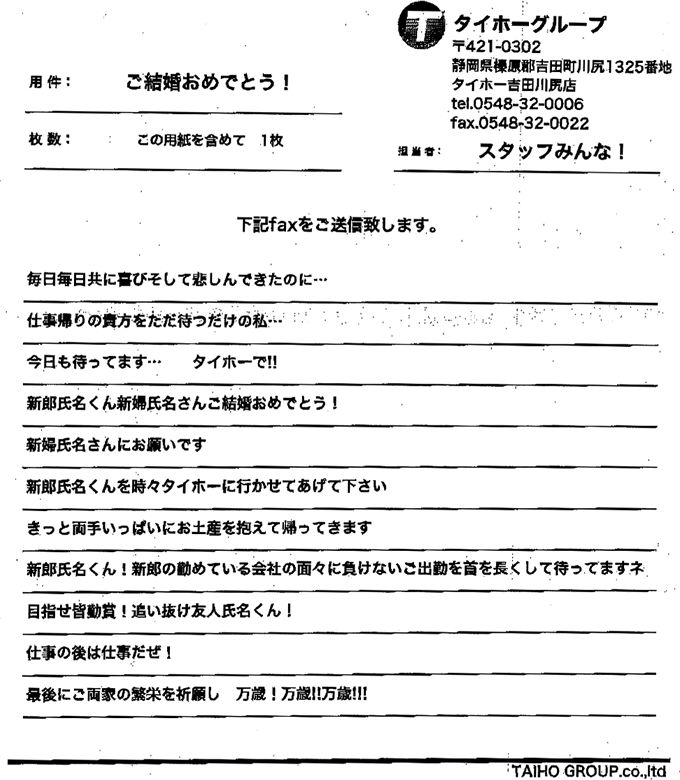 T タイホーグループ
〒421-0302
静岡県榛原郡吉田町川尻1325番地
タイホー吉田川尻店
tel.0548-32-0006
fax.0548-32-0022
用件： ご結婚おめでとう！
枚数： この用紙を含めて 1枚
担当者： スタッフみんな！
下記faxをご送信致します。
毎日毎日共に喜びそして悲しんできたのに…
仕事帰りの貴方をただ待つだけの私…
今日も待ってます… タイホーで!!
新郎氏名くん新婦氏名さんご結婚おめでとう！
新婦氏名さんにお願いです
新郎氏名くんを時々タイホーに行かせてあげて下さい
きっと両手いっぱいにお土産を抱えて帰ってきます
新郎氏名くん！新郎の勤めている会社の面々に負けないご出勤を首を長くして待ってますネ
目指せ皆勤賞！追い抜け友人氏名くん！
仕事の後は仕事だぜ！
最後にご両家の繁栄を祈願し 万歳！万歳!!万歳!!!
TAIHO GROUP.co.,ltd